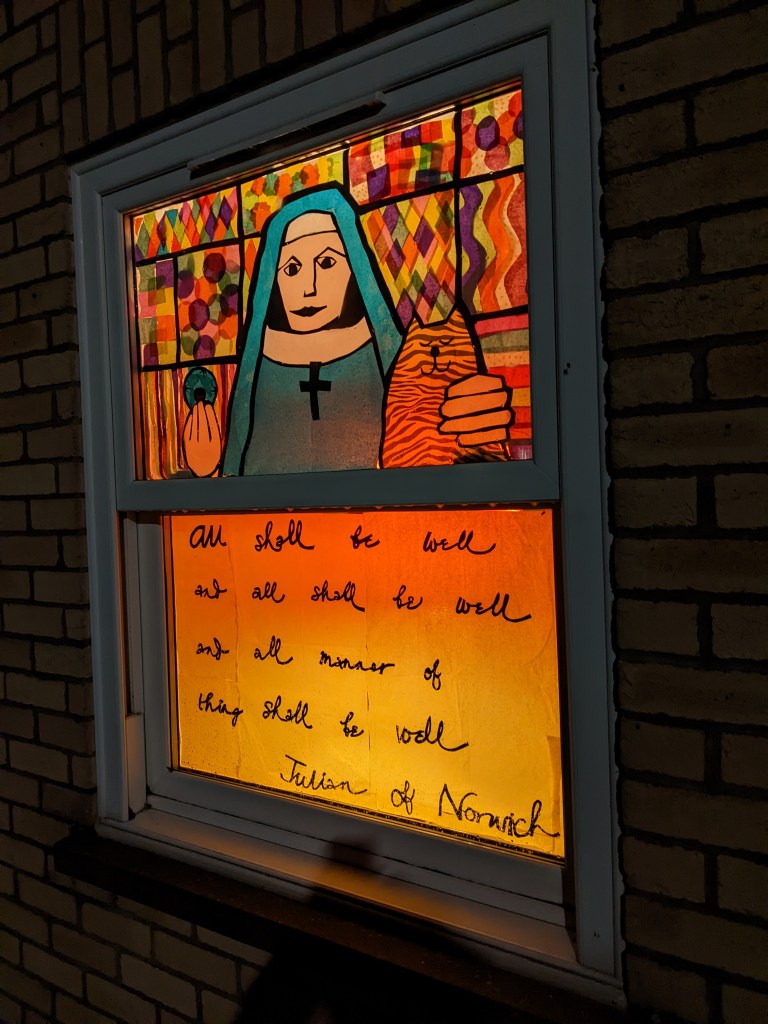 All shall be well
and all shall be well
and all manner of
thing shall be well
Julian of Norwich